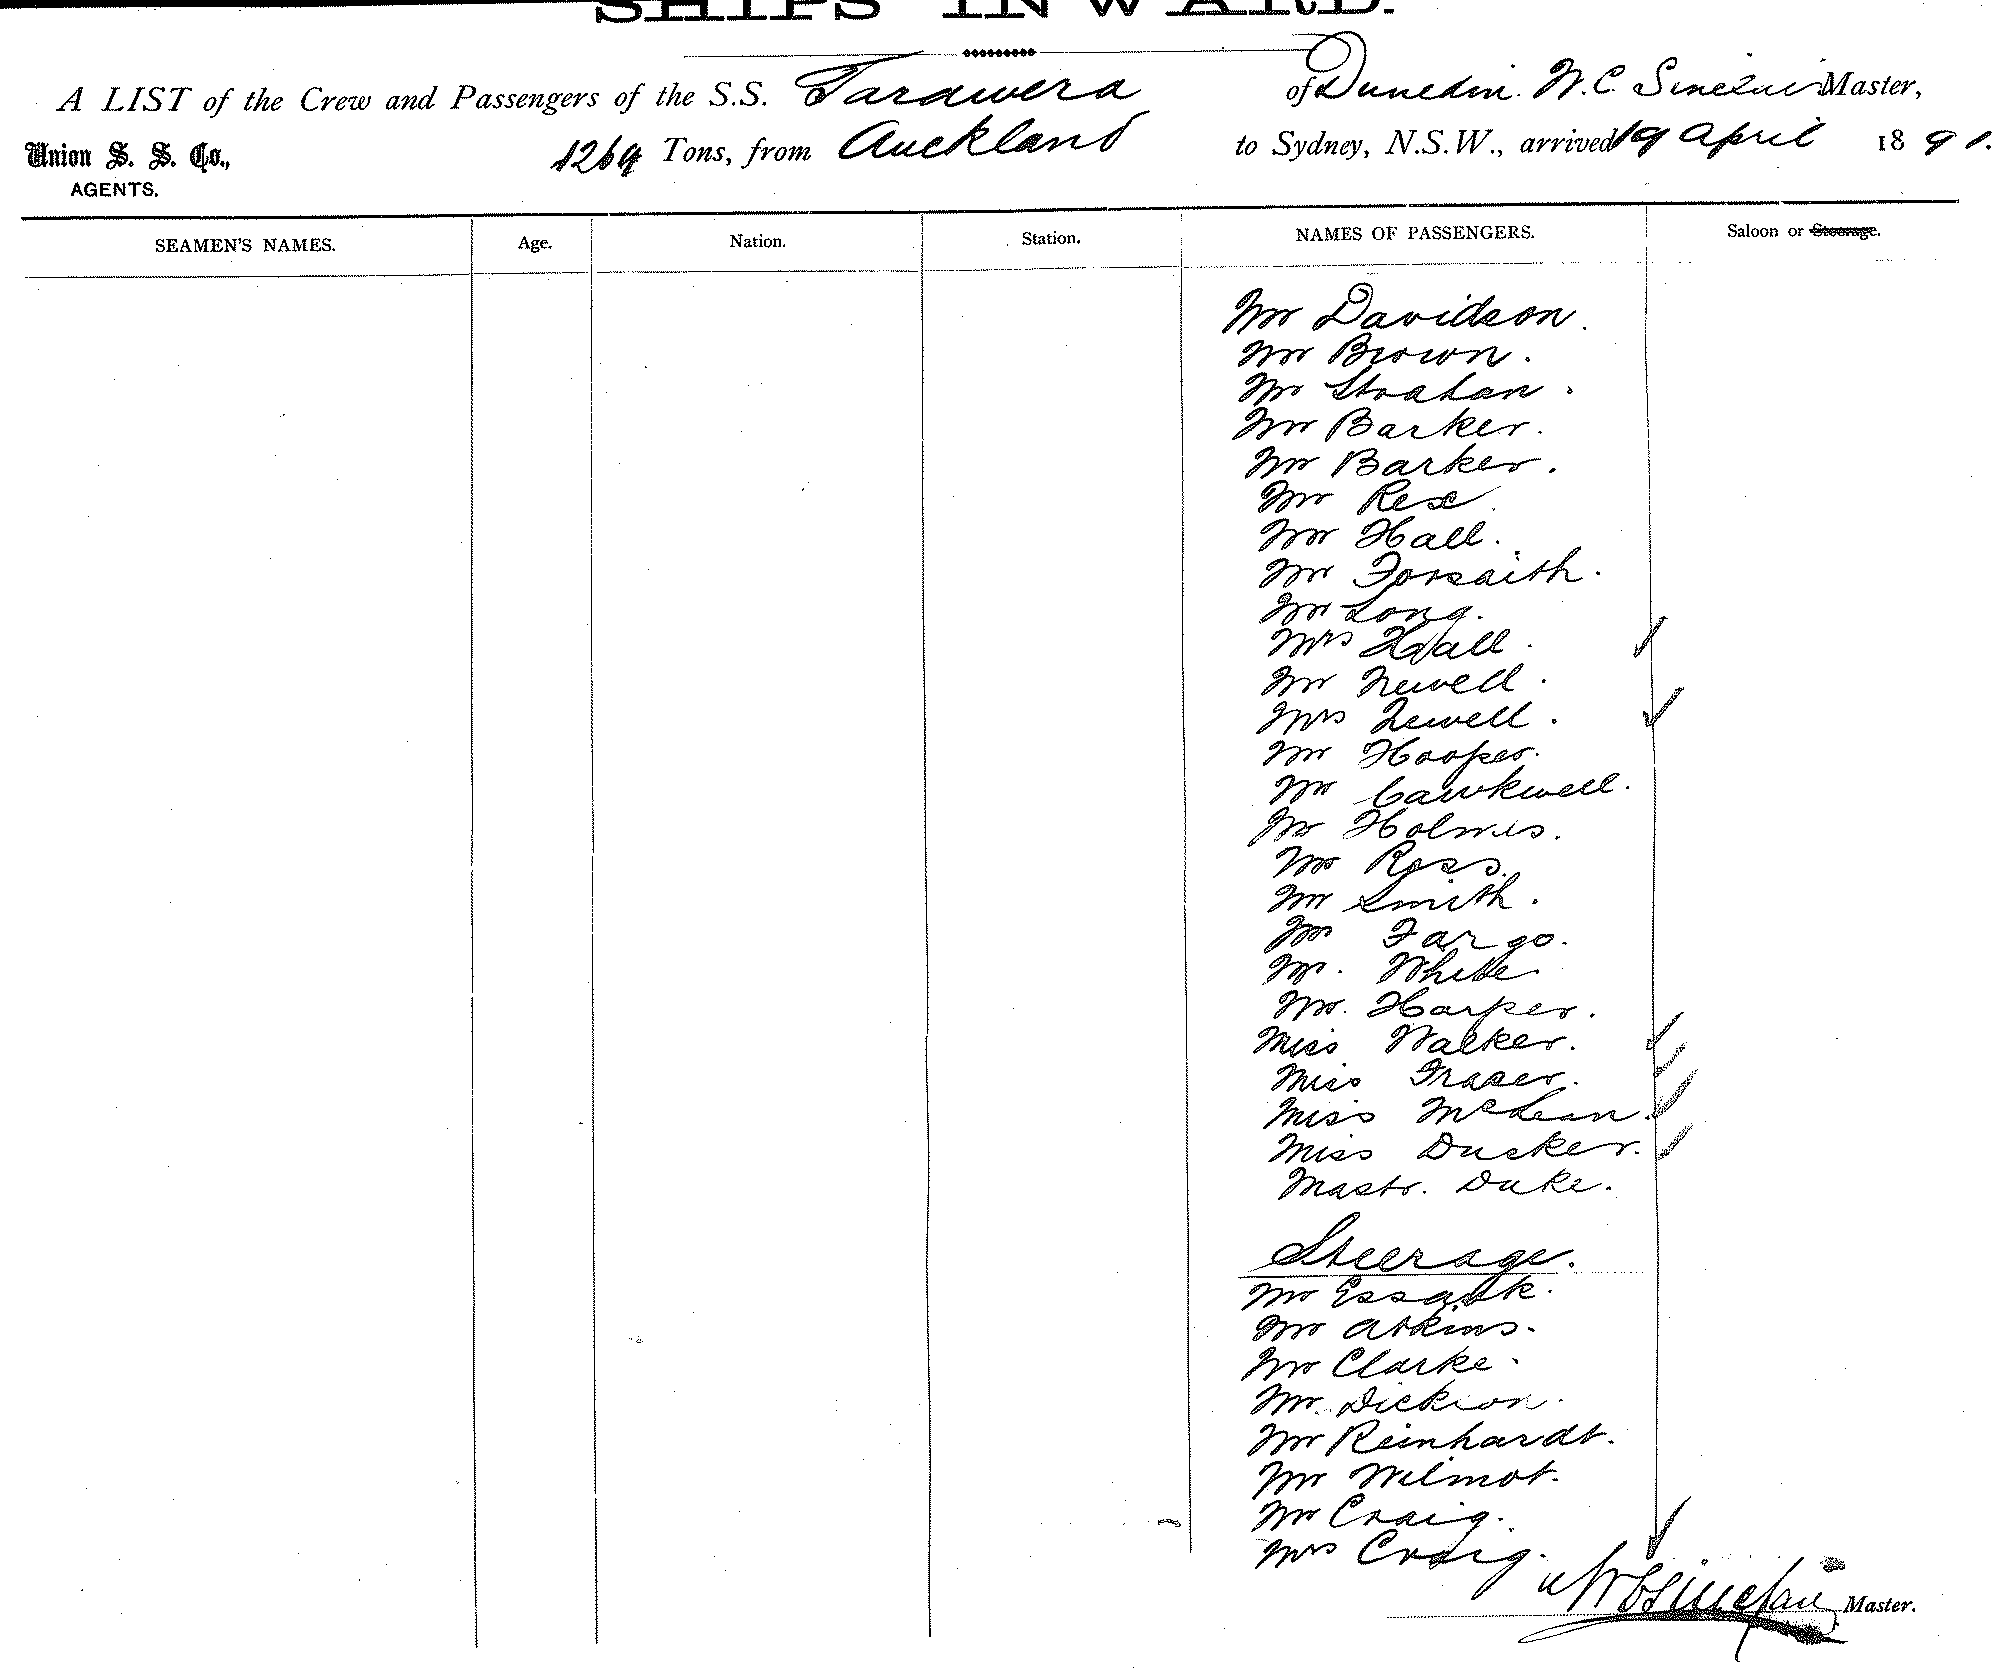 SHIPS INWARD.
A LIST of the Crew and Passengers of the S.S. Tarawera of Dunedin. W.C. Sinclair Master,
Union S. S. Co., 1269 Tons, from Auckland to Sydney, N.S.W., arrived 19 April 1891.
AGENTS.
SEAMEN'S NAMES. Age. Nation. Station. NAMES OF PASSENGERS. Saloon or Steerage.
Mr Davidson.
Mr Brown.
Mr Strahan.
Mr Barker.
Mr Barker.
Mr Rex
Mr Hall.
Mr Forsaith.
Mr Long.
Mrs Hall.
Mr Newell.
Mrs Newell.
Mr Hooper.
Mr Cawkwell.
Mr Holmes.
Mr Ross.
Mr Smith.
Mr Fargo.
Mr. White
Mr. Harper.
Miss Walker.
Miss Fraser.
Miss McLean.
Miss Ducker.
Mastr. Duke.
Steerage.
Mr
Mr Atkins.
Mr Clarke.
Mr. Dickson.
Mr Reinhardt.
Mr Wilmot.
Mr Craig.
Mrs Craig.
W C Sinclair Master.